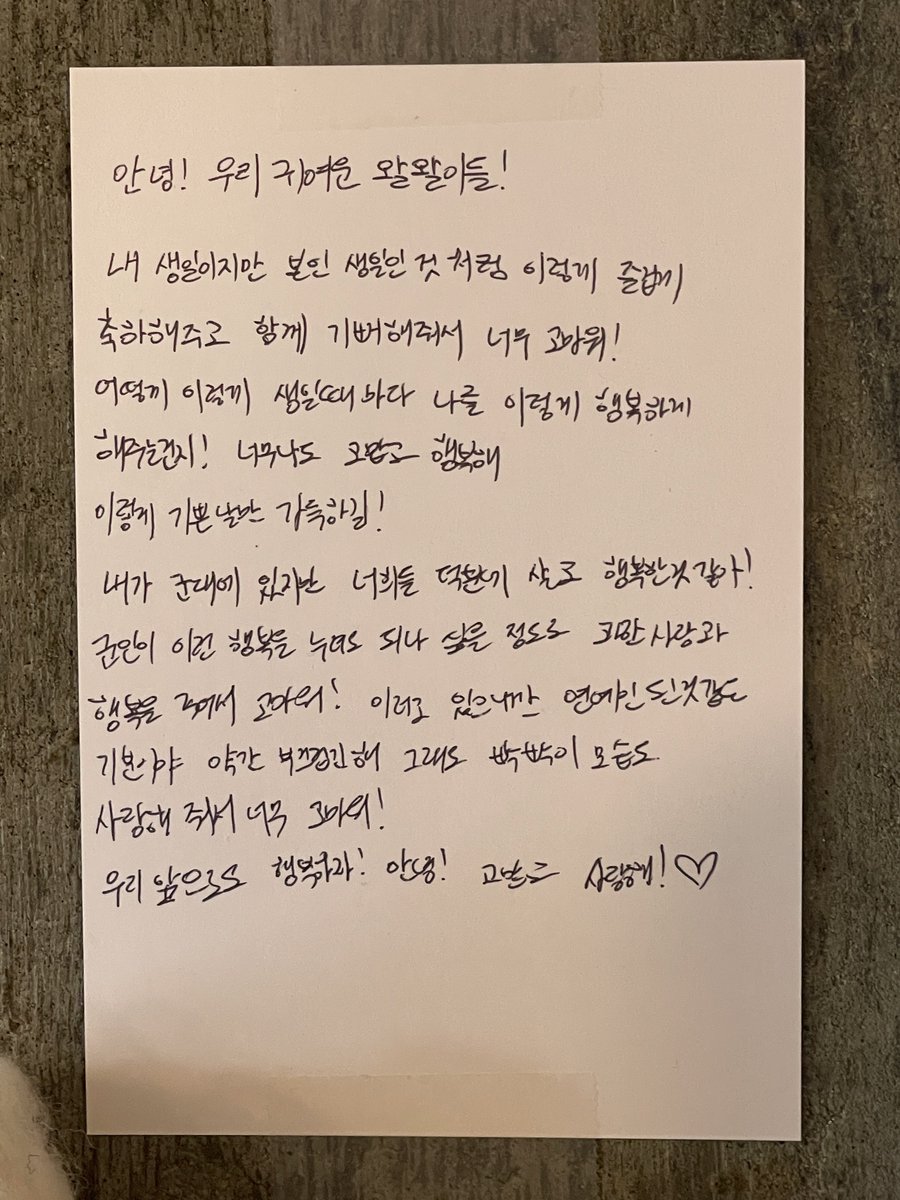 안녕! 우리 귀여운 왈왈이들!
내 생일이지만 본인 생일인 것 처럼 이렇게 즐겁게
축하해주고 함께 기뻐해줘서 너무 고마워!
어떻게 이렇게 생일때마다 나를 이렇게 행복하게
해주는건지! 너무나도 고맙고 행복해
이렇게 기쁜날만 가득하길!
내가 군대에 있지만 너희들 덕분에 살고 행복한것 같아!
군인이 이런 행복을 누려도 되나 싶을 정도로 사랑과
행복을 줘서 고마워! 이러고 있으니깐 연예인 된것같은
기분이야 약간 부끄럽긴해 그래도 빡빡이 모습도
사랑해 줘서 너무 고마워!
우리 앞으로도 행복하자! 안녕! 고맙고 사랑해!♡